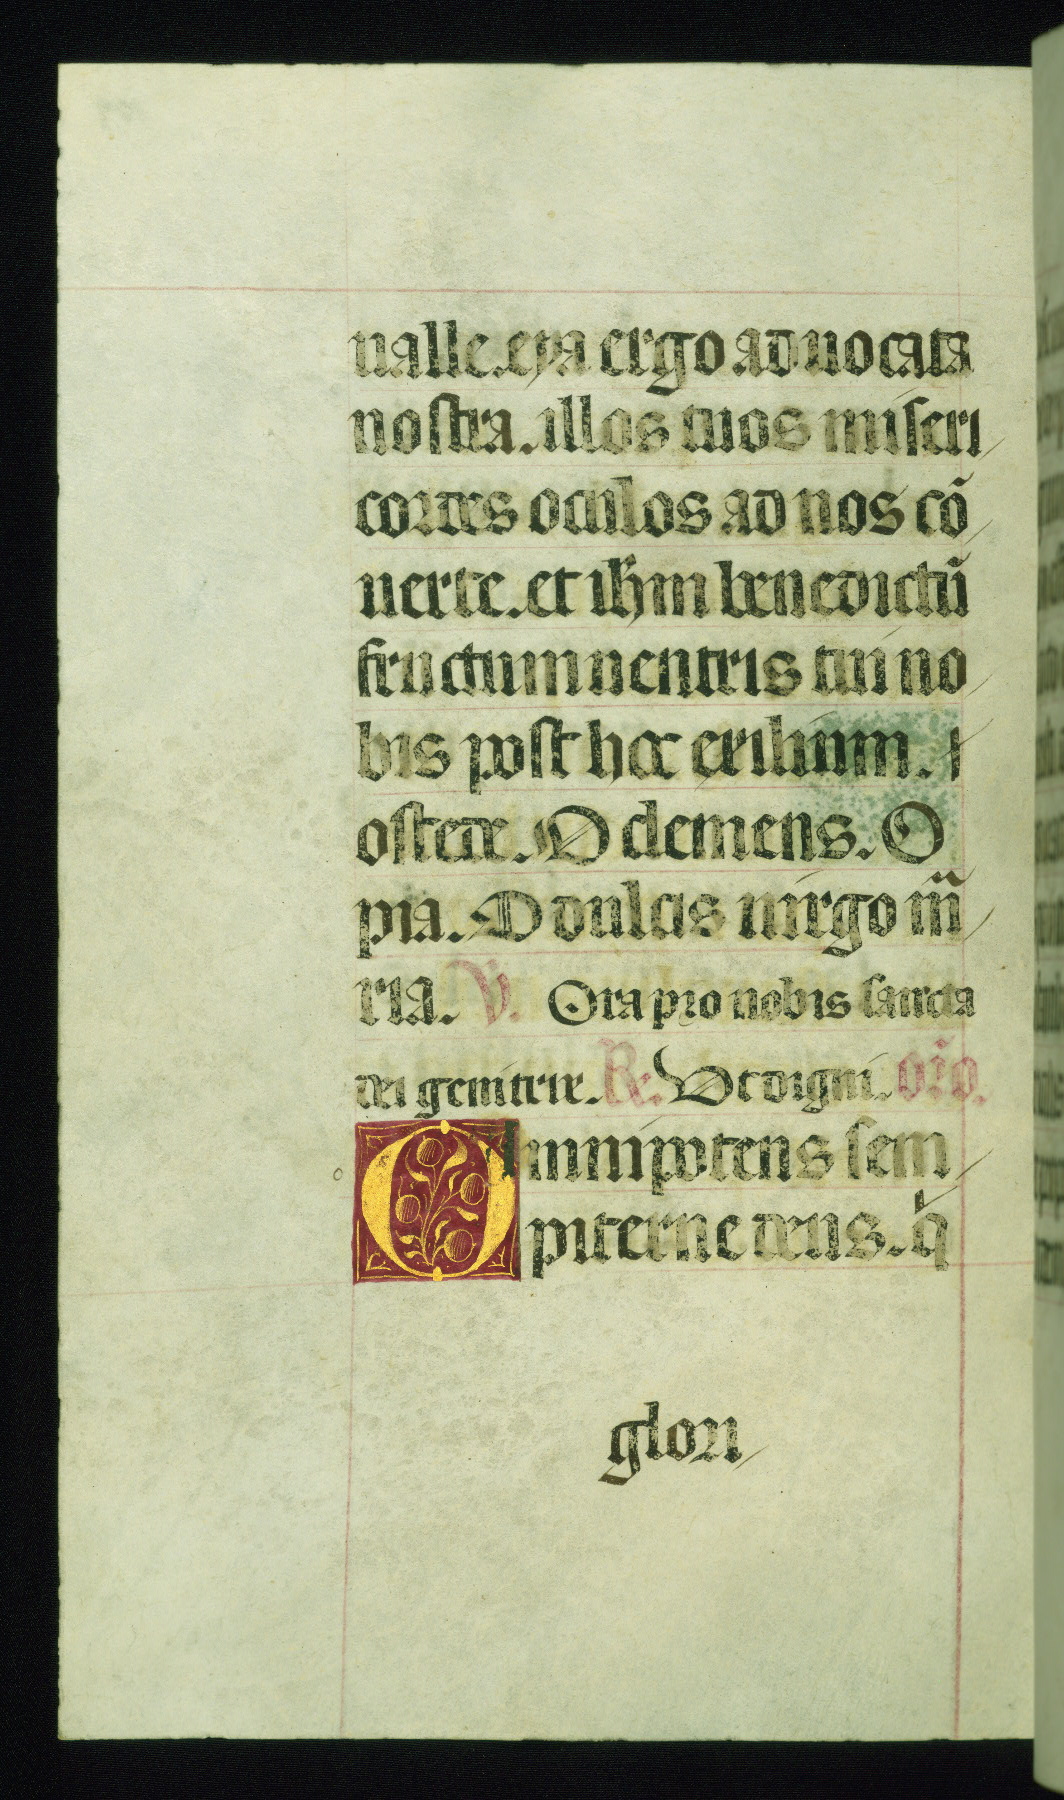 ualle. eya ergo aduocata
nostra. illos tuos miseri
cordes oculos ad nos cō
uerte. et ihm̄ benedictū
fructum uentris tui no
bis post hoc exilium.
ostede. O clemens. O
pia. O dulcis uirgo m̄
ria. V. Ora pro nobis sancta
dei genitrix. R. Vt digni. or̄o.
Omnipotens sem
piterne deus. q̇
glori